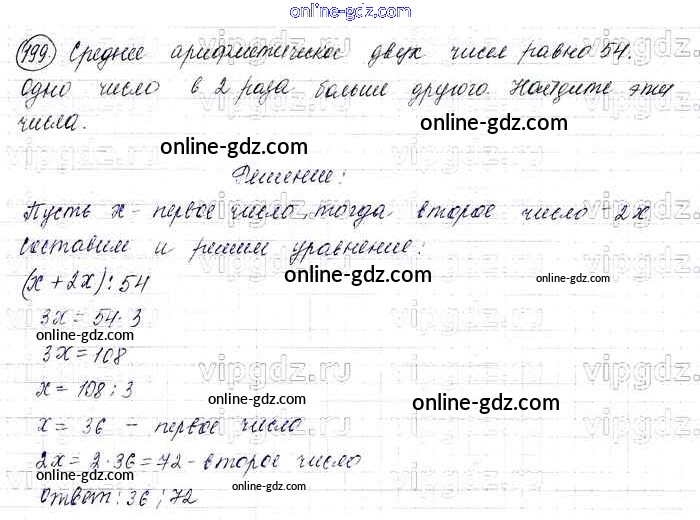 online-gdz.com
199. Среднее арифметическое двух чисел равно 54.
Одно число в 2 раза больше другого. Найдите эти
числа.
online-gdz.com
online-gdz.com
Решение:
Пусть x - первое число, тогда второе число 2x
составим и решим уравнение:
(x + 2x) : 54
online-gdz.com
online-gdz.com
online-gdz.com
3x = 54 · 3
online-gdz.com
3x = 108
x = 108 : 3
online-gdz.com
online-gdz.com
x = 36 - первое число
2x = 2 · 36 = 72 - второе число
online-gdz.com
online-gdz.com
Ответ: 36 ; 72
vipgdz.ru